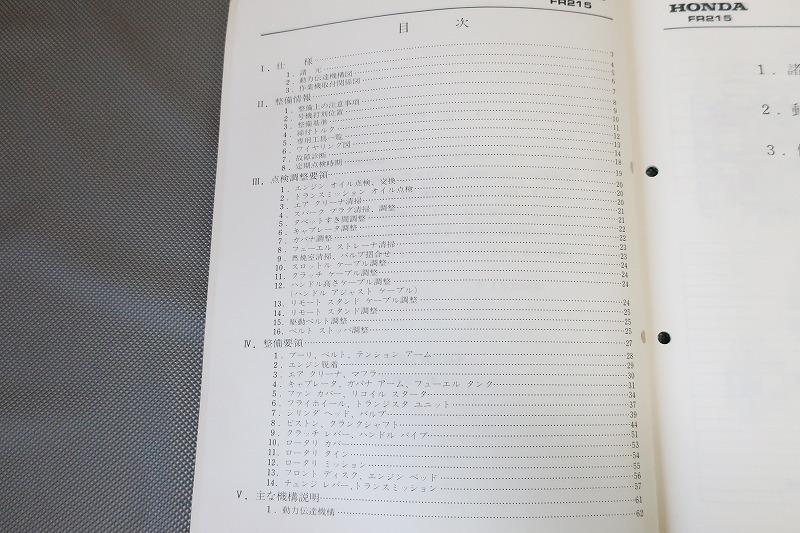 FR215
目　次
Ⅰ．仕　様 3
1．諸　元 4
2．動力伝達機構図 5
3．作業機取付関係図 6
Ⅱ．整備情報 7
1．整備上の注意事項 8
2．号機打刻位置 9
3．整備基準 10
4．締付トルク 11
5．専用工具一覧 12
6．ワイヤリング図 13
7．故障診断 14
8．定期点検時期 18
Ⅲ．点検調整要領 19
1．エンジン オイル点検、交換 20
2．トランスミッション オイル点検 20
3．エア クリーナ清掃 20
4．スパーク プラグ清掃、調整 21
5．タペットすき間調整 21
6．キャブレータ調整 22
7．ガバナ調整 22
8．フューエル ストレーナ清掃 23
9．燃焼室清掃、バルブ摺合せ 23
10．スロットル ケーブル調整 24
11．クラッチ ケーブル調整 24
12．ハンドル高さケーブル調整 24
（ハンドル アジャスト ケーブル）
13．リモート スタンド ケーブル調整 24
14．リモート スタンド調整 25
15．駆動ベルト調整 25
16．ベルト ストッパ調整 25
Ⅳ．整備要領 27
1．プーリ、ベルト、テンション アーム 28
2．エンジン脱着 29
3．エア クリーナ、マフラ 30
4．キャブレータ、ガバナ アーム、フューエル タンク 31
5．ファン カバー、リコイル スタータ 34
6．フライホイール、トランジスタ ユニット 37
7．シリンダ ヘッド、バルブ 39
8．ピストン、クランクシャフト 44
9．クラッチ レバー、ハンドル パイプ 51
10．ロータリ カバー 53
11．ロータリ タイン 54
12．ロータリ ミッション 55
13．フロント ディスク、エンジン ベッド 56
14．チェンジ レバー、トランスミッション 57
Ⅴ．主な機構説明 61
1．動力伝達機構 62
HONDA
FR215
1．諸
2．動
3．